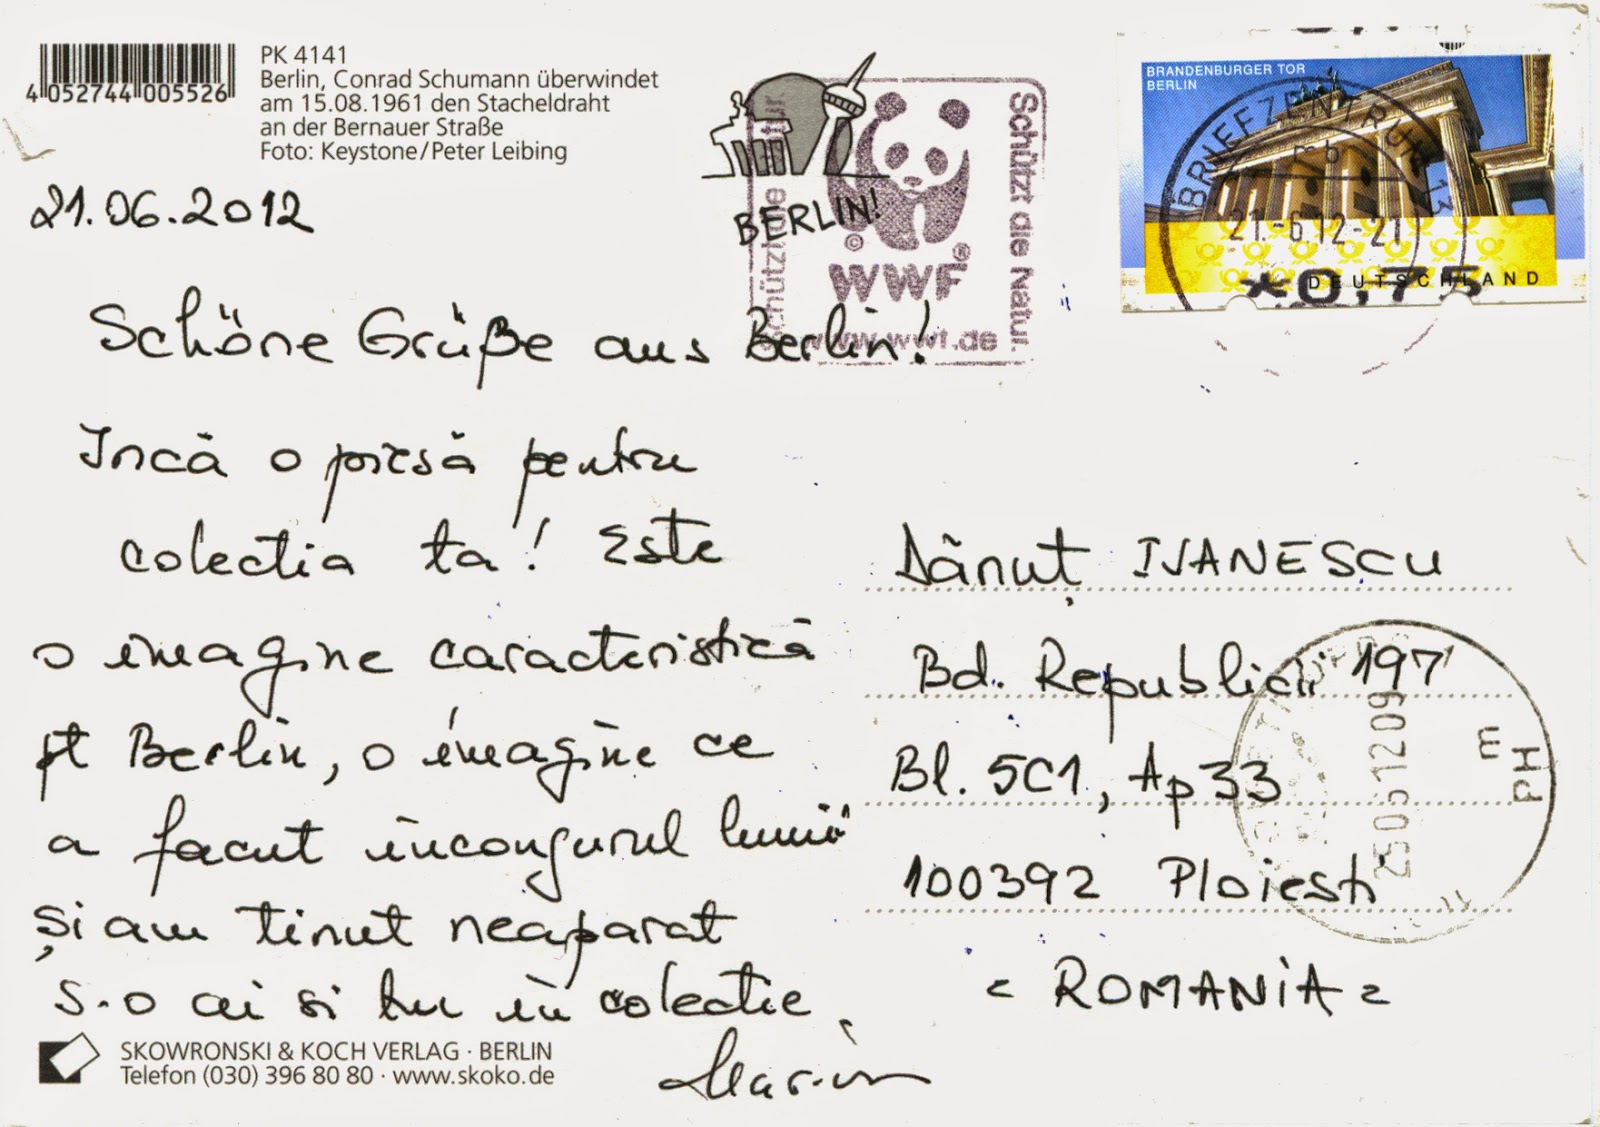 4 052744 005526
PK 4141
Berlin, Conrad Schumann überwindet
am 15.08.1961 den Stacheldraht
an der Bernauer Straße
Foto: Keystone/Peter Leibing
BERLIN!
Schützt die Natur
Schützt die Natur
© WWF ®
www.wwf.de
BRANDENBURGER TOR
BERLIN
BRIEFZENTRUM 13
21.-6.12-21
DEUTSCHLAND
*0,75
21.06.2012
Schöne Grüße aus Berlin!
Incă o piesă pentru
colectia ta! Este
o imagine caracteristică
pt Berlin, o imagine ce
a facut inconjurul lumii
și am tinut neaparat
s-o ai si tu in colectie.
Marin
Dănuț IVANESCU
Bd. Republicii 197
Bl. 5C1, Ap 33
100392 Ploiesti
= ROMANIA =
PH
m
25061209
SKOWRONSKI & KOCH VERLAG · BERLIN
Telefon (030) 396 80 80 · www.skoko.de